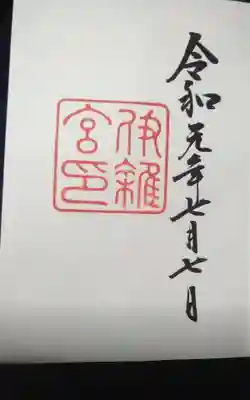 令和元年七月七日
伊雜
宮印